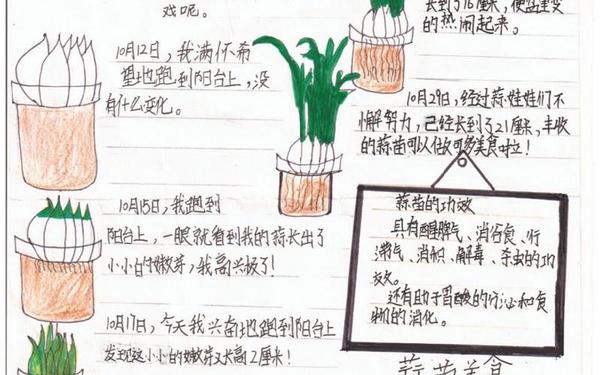 戏呢。
10月12日，我满怀希
望地跑到阳台上，没
有什么变化。
10月15日，我跑到
阳台上，一眼就看到我的蒜长出了
小小的嫩芽，我高兴极了！
10月17日，今天我兴奋地跑到阳台上
发现这小小的嫩芽又长高2厘米！
长到了16厘米，使盆里变
的热闹起来。
10月29日，经过蒜娃娃们不
懈努力，已经长到了21厘米，丰收
的蒜苗可以做可多美食啦！
蒜苗的功效
具有醒脾气、消谷食、行
滞气、消积、解毒、杀虫的功
效。
还有助于胃酸的分泌和食
物的消化。
蒜苗美食